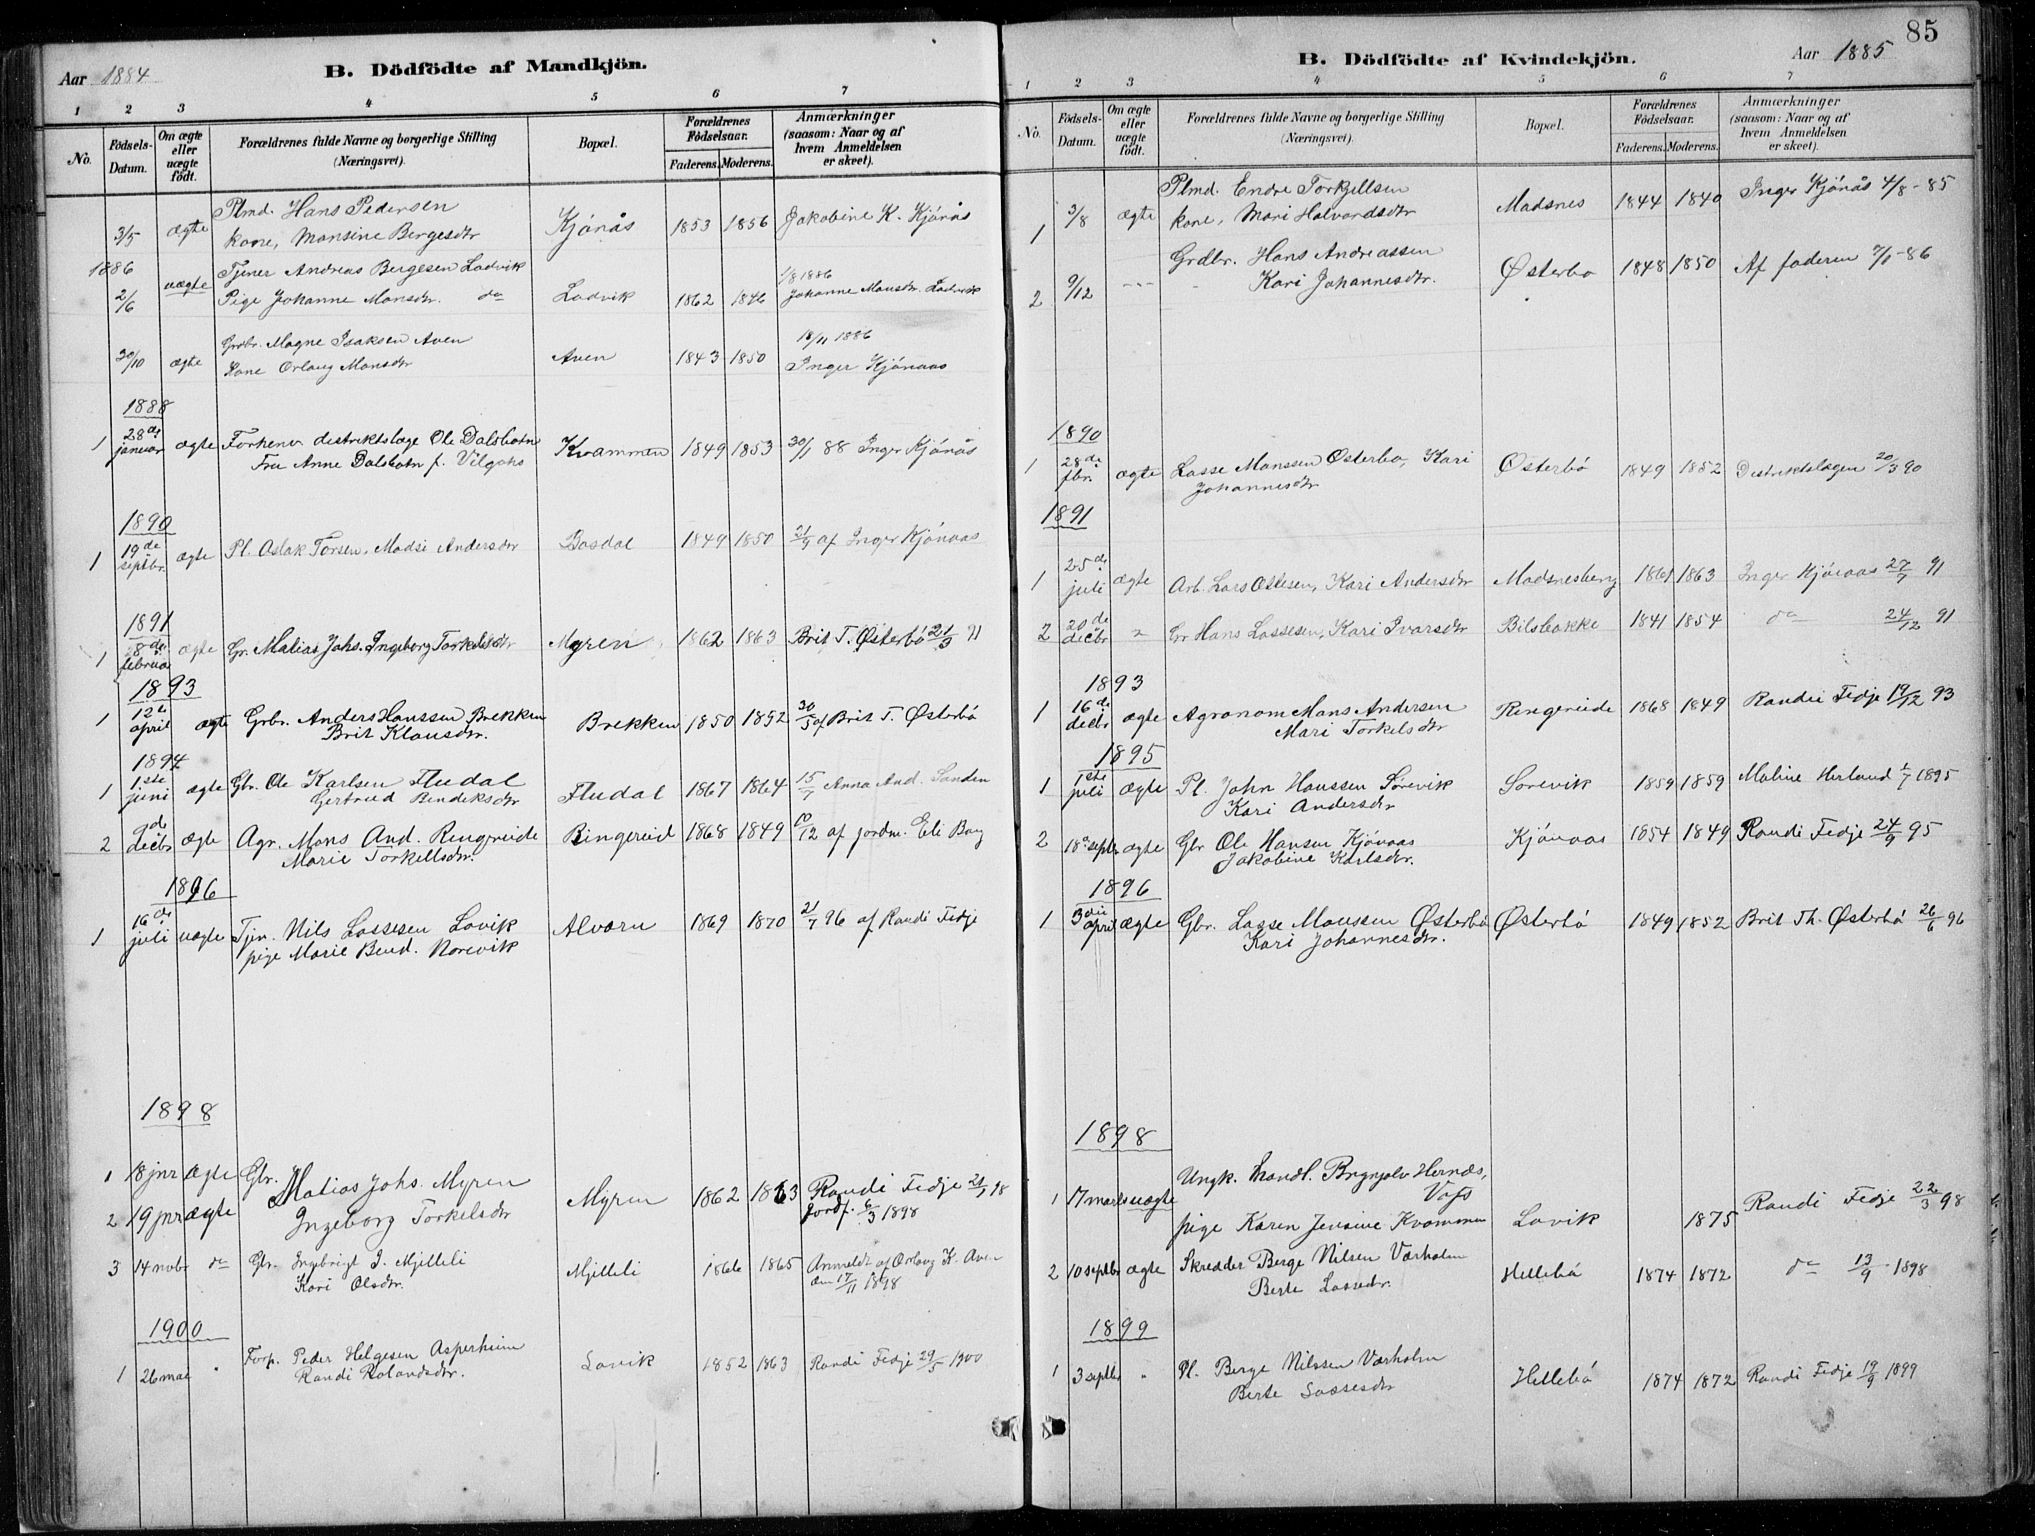 Aar 1884
B. Dödfödte af Mandkjön.
1 2 3 4 5 6 7
No.
Födsels-
Datum.
Om ægte
eller
uægte
födt.
Forældrenes fulde Navne og borgerlige Stilling
(Næringsvei).
Bopæl.
Forældrenes
Födselsaar.
Faderens. Moderens.
Anmærkninger
(saasom: Naar og af
hvem Anmeldelsen
er skeet).
3/5 ægte Plmd. Hans Pedersen
kone, Monsine Bergesdtr Kjönås 1853 1856 Jakobine K. Kjönås
1886
2/6 uægte Tjener Andreas Bergesen Ladvik
Pige Johanne Monsdr. do Ladvik 1862 1846 1/8 1886
Johanne Monsdr. Ladvik
30/10 ægte Grdbr. Magne Isaksen Aven
Kone Orlaug Monsdtr Aven 1843 1850 18/11 1886
Inger Kjönaas
1888
1 28de januar ægte Forhenv. distriktslæge Ole Dalsbotn
Fru Anne Dalsbotn f. Kvammen 1849 1853 30/1 88 Inger Kjönås
1890
1 19de septbr. ægte Pl. Oslak Torsen, Madsi Andersdtr Bosdal 1849 1850 21/9 af Inger Kjönaas
1891
1 8de februar ægte Gr. Matias Johs. Ingeborg Torkelsdtr Myren 1862 1863 Brit T. Østerbö 21/3 91
1893
1 12te april ægte Grbr. Anders Hanssen Brekken
Brit Klausdtr. Brekken 1850 1852 30/5 af Brit T. Østerbö
1894
1 1ste juni ægte Gbr. Ole Karlsen Fludal
Gertrud Bendiksdtr Fludal 1867 1864 15/7 Anna And. Sanden
2 decbr ægte Agr. Mons And. Ringereide
Marie Torkellsdtr. Ringereid 1868 1849 /12 af jordm. Eli Borg
1896
1 16de juli uægte Tjn. Nils Lassesen Lavik
pige Marie Bend. Norevik Alværn 1869 1870 21/7 96 af Randi Fedje
1898
1 18 jnr ægte Gbr.
Matias Johs. Myren Myren 1862 1863 Randi Fedje 21/1 98
2 19 jnr ægte Ingeborg Torkelsdtr
Jordf. 6/3 1898
3 14 novbr do Gbr. Ingebrigt I. Mjelleli
Kari Olsdtr. Mjelleli 1866 1865 Anmeldt af Orlaug K. Aven
den 17/11 1898
1900
1 26 mai " Forp. Peder Helgesen Asperheim
Randi Rolandsdtr. Lavik 1852 1863 Randi Fedje 29/5 1900
85
B. Dödfödte af Kvindekjön.
Aar 1885
1 2 3 4 5 6 7
No.
Födsels-
Datum.
Om ægte
eller
uægte
födt.
Forældrenes fulde Navne og borgerlige Stilling
(Næringsvei).
Bopæl.
Forældrenes
Födselsaar.
Faderens. Moderens.
Anmærkninger
(saasom: Naar og af
hvem Anmeldelsen
er skeet).
1 3/8 ægte Plmd. Endre Torkjellsen
kone, Mari Halvardsdtr Madsnes 1844 1840 Inger Kjönås 4/8-85
2 9/12 --- Grdbr. Hans Andreassen
Kari Johannesdtr. Østerbo 1848 1850 Af faderen 7/1-86
1890
1 28de fbr. ægte Lasse Monssen Østerbo, Kari
Johannesdtr Østerbö 1849 1852 Distriktslægen 20/3 90
1891
1 25de juli ægte Arb. Lars Ottesen, Kari Andersdtr Madsnesberg 1861 1863 Inger Kjönaas 27/7 91
2 20de decbr " Gr Hans Lassesen, Kari Ivarsdtr Bilsbakke 1841 1854 do 24/12 91
1893
1 16de decbr ægte Agronom Mons Andersen
Mari Torkelsdtr Ringereide 1868 1849 Randi Fedje 19/12 93
1895
1 1ste juli ægte Pl. John Hanssen Sörevik
Kari Andersdtr Sorevik 1859 1859 Maline Herland 1/7 1895
2 18de septbr. ægte Gbr Ole Hansen Kjönaas
Jakobine Karlsdtr. Kjönaas 1854 1849 Randi Fedje 24/9 95
1896
1 3die april ægte Gbr. Lasse Monssen Østerbö
Kari Johannesdtr. Østerbö 1849 1852 Brit Th. Østerbö 26/6 96
1898
1 17 marts uægte Ungk. handl. Brynjolv Hernæs,
Vafs
pige Karen Jensine Kvammen Lavik 1875 Randi Fedje 22/3 98
2 10 septbr ægte Skredder Berge Nilsen Værholm
Berte Lassedtr. Hellebö 1874 1872 do 13/9 1898
1899
1 3 septbr " Pl. Berge Nilssen Værholm
Berte Lassesdtr Hellebö 1874 1872 Randi Fedje 19/9 1899